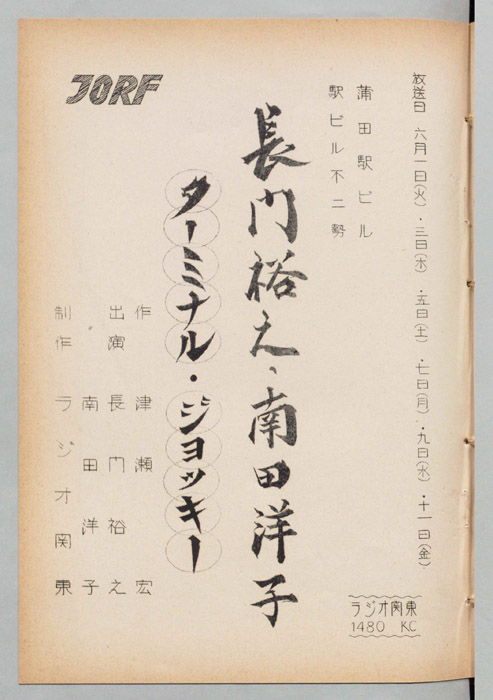 放送日 六月一日(火)・三日(木)・五日(土)・七日(月)・九日(水)・十一日(金)
蒲田駅ビル
駅ビル不二勢
長門裕之・南田洋子
ターミナル・ジョッキー
作 津瀬宏
出演 長門裕之
南田洋子
制作 ラジオ関東
JORF
ラジオ関東
1480 KC